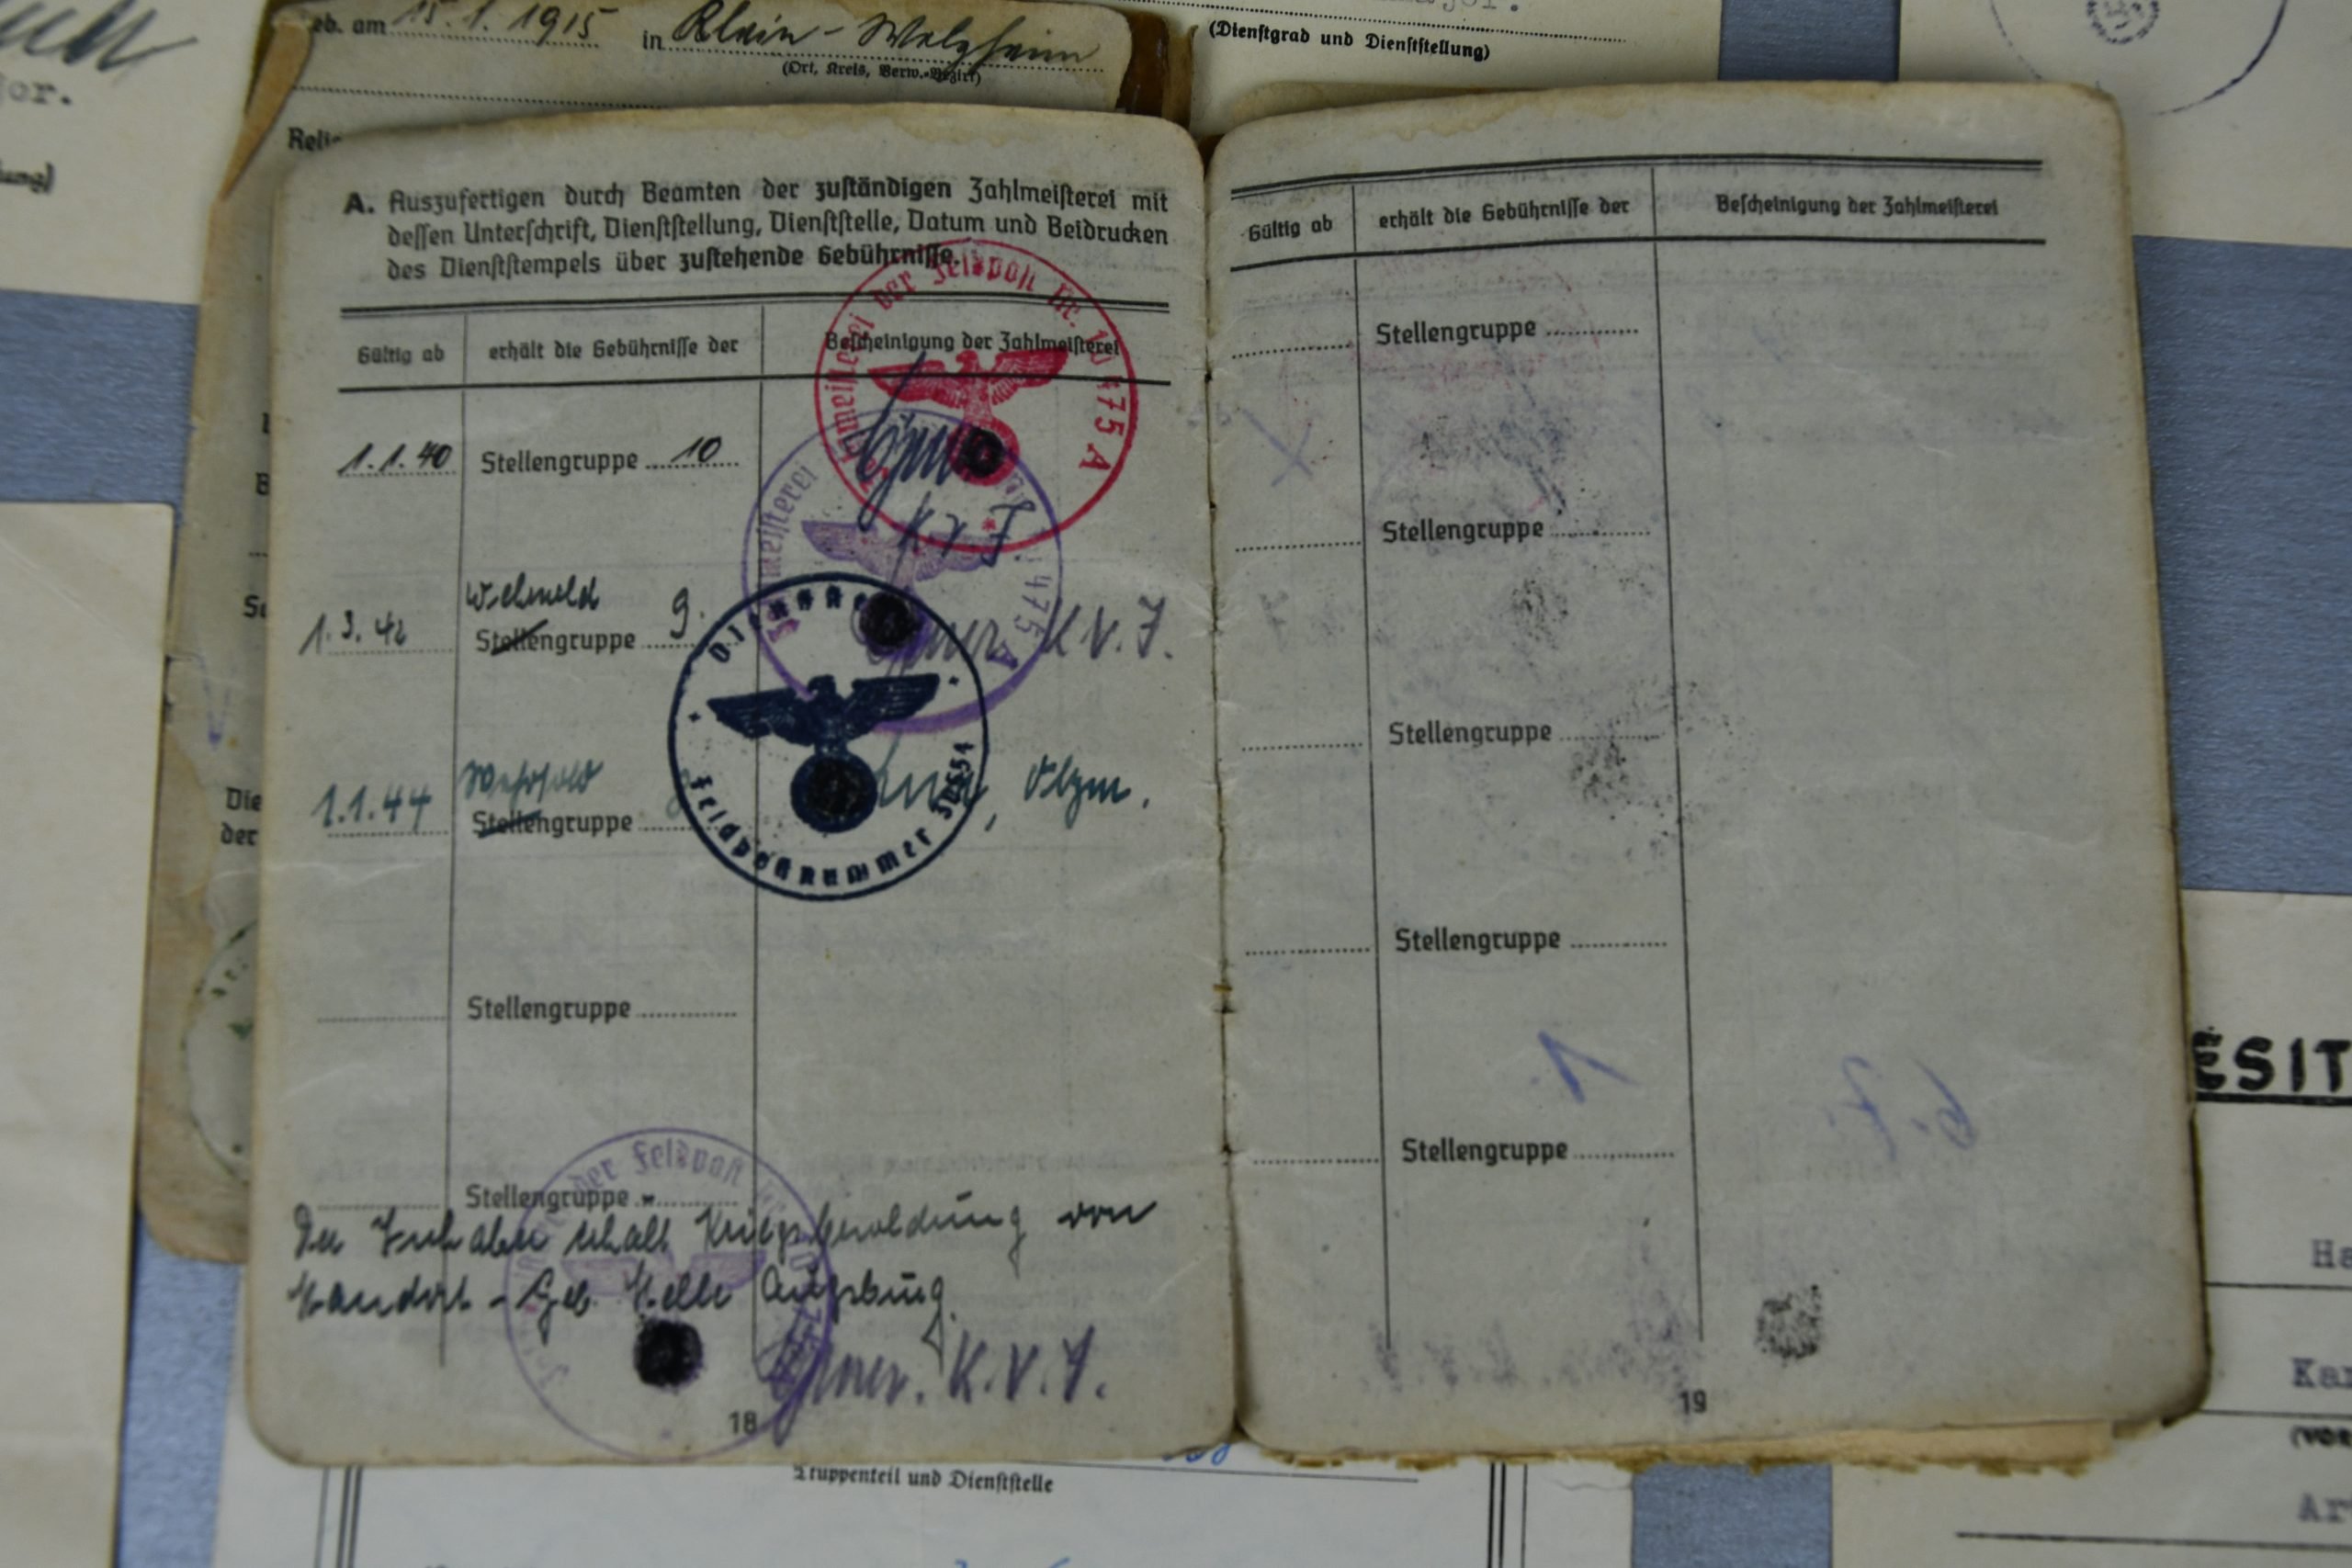 jor.
eb. am 15.1.1915 in Klein-Welzheim
(Ort, Kreis, Verw.-Bezirk)
(Dienstgrad und Dienststellung)
A. Auszufertigen durch Beamten der zuständigen Zahlmeisterei mit
dessen Unterschrift, Dienststellung, Dienststelle, Datum und Beidrucken
des Dienststempels über zustehende Gebührnisse.
Gültig ab erhält die Gebührnisse der Bescheinigung der Zahlmeisterei
der Feldpost Nr. 475 A
1.1.40 Stellengruppe 10
K.V.I.
meisterei 475 A
1.3.42 Wehrsold Stellengruppe 9.
K.V.I.
Feldpostnummer
1.1.44 Wehrsold
Stellengruppe
Stellengruppe
Stellengruppe
der Feldpost
Der Inhaber erhält Kriegsbesoldung von
Standort-Geb. Stelle Augsburg.
K.V.I.
18
Gültig ab erhält die Gebührnisse der Bescheinigung der Zahlmeisterei
Stellengruppe
Stellengruppe
Stellengruppe
Stellengruppe
Stellengruppe
19
Die
der
ESIT
Ha
Kar
(VOR
Ar
Truppenteil und Dienststelle